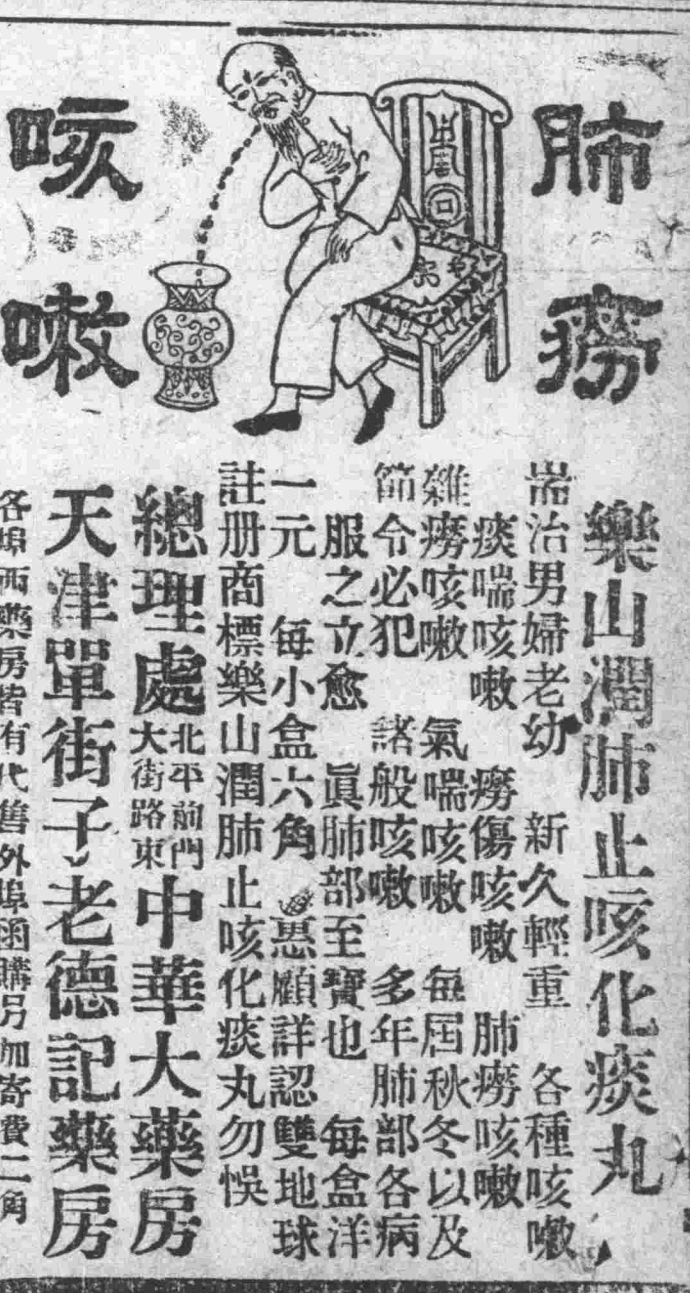 肺癆
咳嗽
樂山潤肺止咳化痰丸
耑治男婦老幼　新久輕重　各種咳嗽
痰喘咳嗽　癆傷咳嗽　肺癆咳嗽
雜癆咳嗽　氣喘咳嗽　每屆秋冬以及
節令必犯　諸般咳嗽　多年肺部各病
服之立愈　眞肺部至寶也　每盒洋
一元　每小盒六角　惠顧詳認雙地球
註册商標樂山潤肺止咳化痰丸勿悞
總理處 北平前門大街路東 中華大藥房
天津單街子老德記藥房
各埠西藥房皆有代售外埠函購另加寄費二角